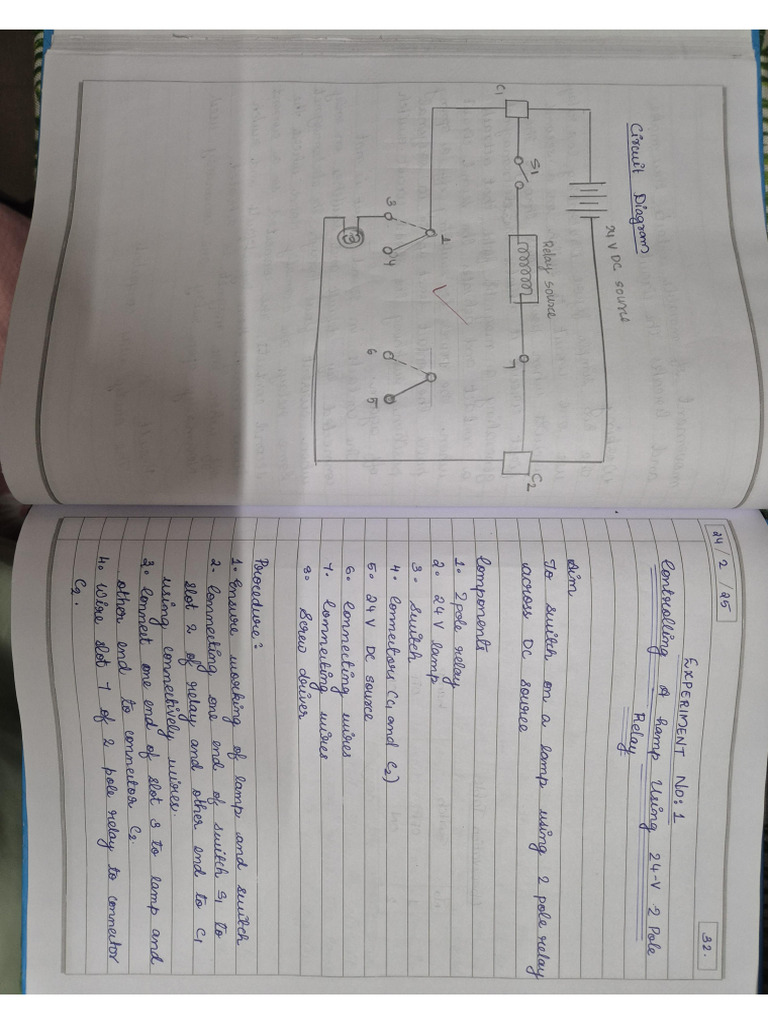 Circuit Diagram
24 V DC source
C1
S1
Relay source
7
C2
1
3
4
6
5
24/2/25
32.
EXPERIMENT No: 1
Controlling A Lamp Using 24-V 2 Pole
Relay
Aim
To switch on a lamp using 2 pole relay
across DC source
Components
1. 2pole relay
2. 24V lamp
3. Switch
4. Connectors (C1 and C2)
5. 24V DC source
6. Connecting wires
7. Connecting wires
8. Screw driver
Procedure:
1. Ensure working of lamp and switch
2. Connecting one end of switch S1 to
slot 2 of relay and other end to C1
using connectively wires.
3. Connect one end of slot 3 to lamp and
other end to connector C2.
4. Wire slot 7 of 2 pole relay to connector
C2.